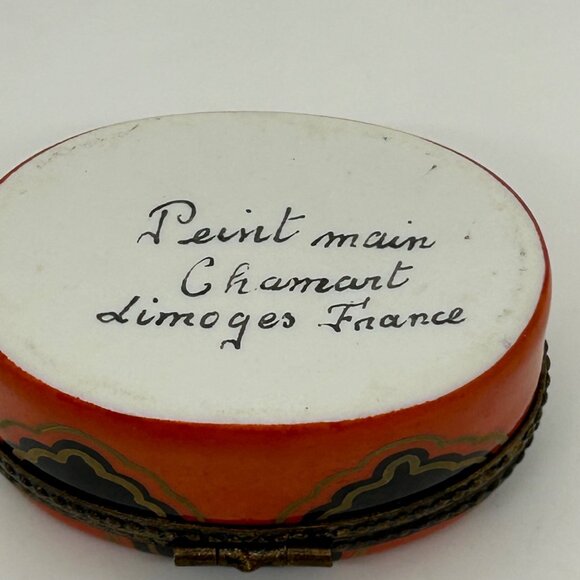 Peint main
Chamart
Limoges France